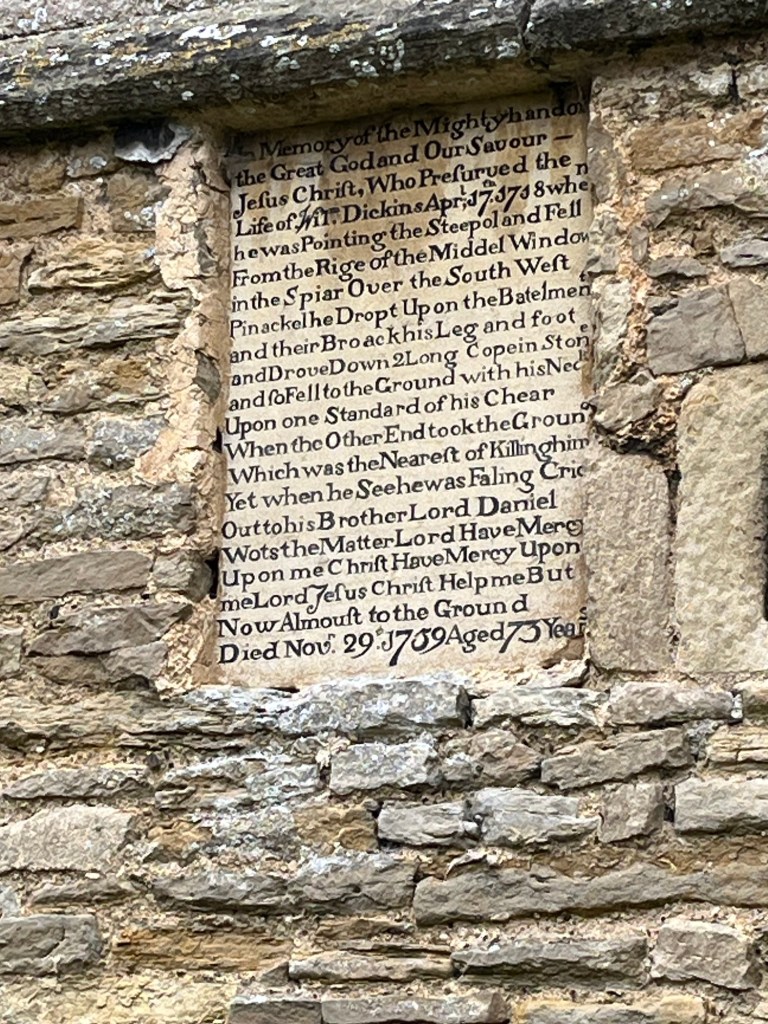 In Memory of the Mighty hand of
the Great God and Our Savour —
Jeſus Christ, Who Preſurved the
Life of Wᵐ. Dickins Aprˡ. 17.ᵗʰ 1718 when
he was Pointing the Steepol and Fell
From the Rige of the Middel Window
in the Spiar Over the South Weſt
Pinackel he Dropt Upon the Batelmen
and their Broack his Leg and foot
and Drove Down 2 Long Copein Ston
and ſo Fell to the Ground with his Neck
Upon one Standard of his Chear
When the Other End took the Groun
Which was the Neareſt of Killinghim
Yet when he See he was Faling Cric
Out to his Brother Lord Daniel
Wots the Matter Lord Have Mercy
Upon me Chriſt Have Mercy Upon
me Lord Jeſus Chriſt Help me But
Now Almouſt to the Ground
Died Novʳ. 29.ᵗʰ 1759 Aged 73 Years